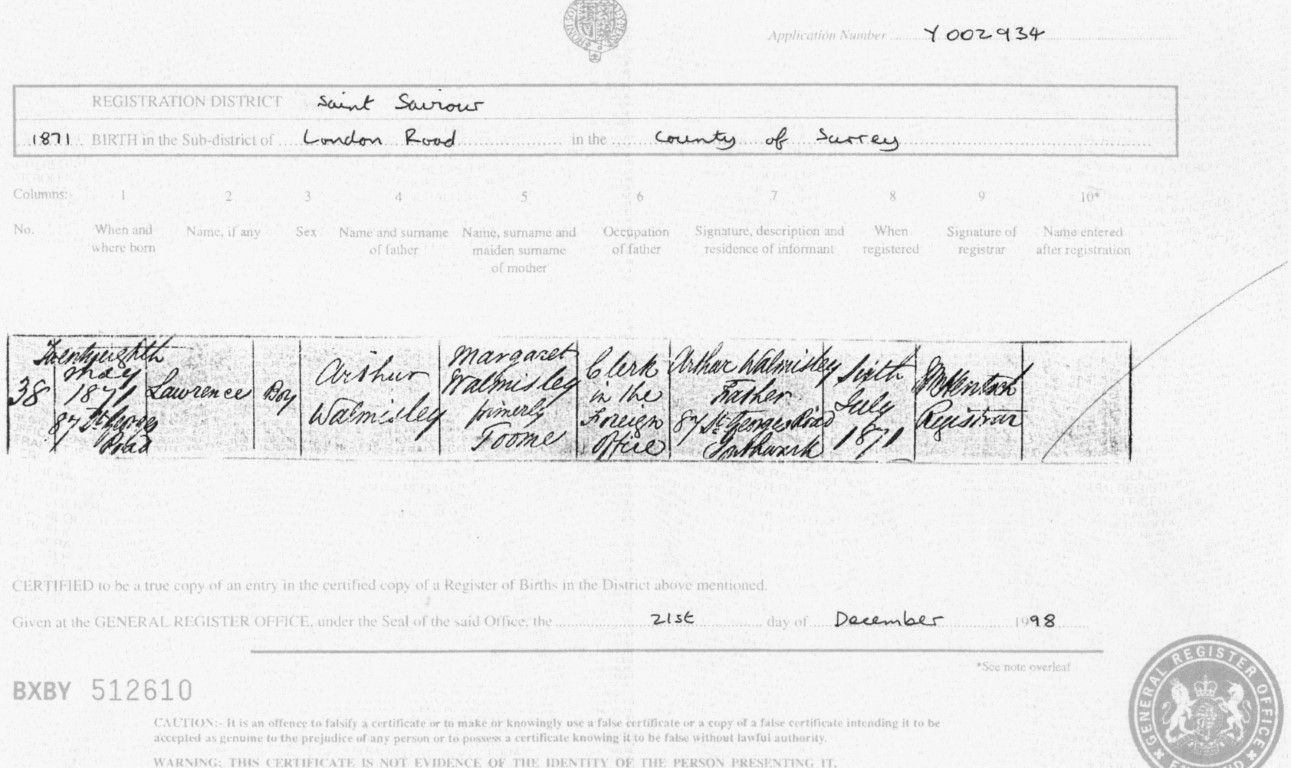 Application Number Y002934
REGISTRATION DISTRICT Saint Saviour
1871 BIRTH in the Sub-district of London Road in the County of Surrey
Columns:- 1 2 3 4 5 6 7 8 9 10*
No. When and where born Name, if any Sex Name and surname of father Name, surname and maiden surname of mother Occupation of father Signature, description and residence of informant When registered Signature of registrar Name entered after registration
38
Twentyeighth
May
1871
87 St Georges
Road
Lawrence
Boy
Arthur
Walmisley
Margaret
Walmisley
formerly
Toome
Clerk
in the
Foreign
Office
Arthur Walmisley
Father
87 St Georges Road
Southwark
Sixth
July
1871
Registrar
CERTIFIED to be a true copy of an entry in the certified copy of a Register of Births in the District above mentioned.
Given at the GENERAL REGISTER OFFICE, under the Seal of the said Office, the 21st day of December 1998
*See note overleaf
BXBY 512610
GENERAL REGISTER OFFICE
CAUTION:- It is an offence to falsify a certificate or to make or knowingly use a false certificate or a copy of a false certificate intending it to be
accepted as genuine to the prejudice of any person or to possess a certificate knowing it to be false without lawful authority.
WARNING: THIS CERTIFICATE IS NOT EVIDENCE OF THE IDENTITY OF THE PERSON PRESENTING IT.